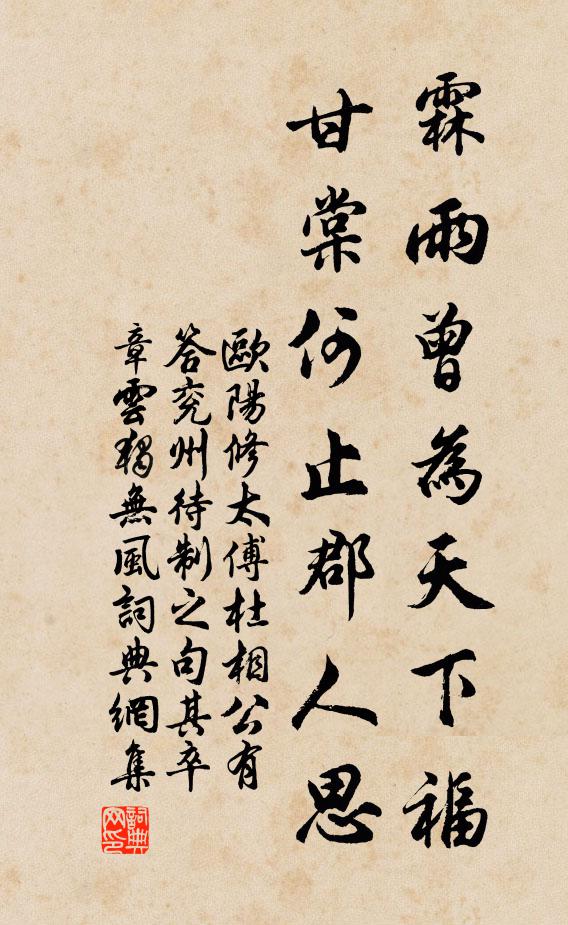 霖雨曾為天下福
甘棠何止郡人思
歐陽修太傅杜相公有
答兖州待制之句其卒
章雲獨無風詞典網集
詞典
网印